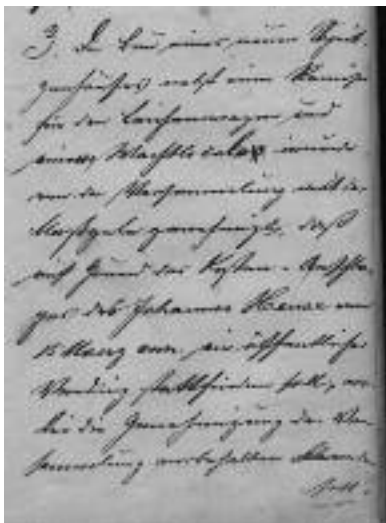 3. Der Bau eines neuen Sprit-
zenhauses nebst einer Remise
für den Leichenwagen und
eines Wachtlocales wurde
von der Versammlung mit der
Maßgabe genehmigt, daß
auf Grund des Kosten-Anschla-
ges des Johannes
15 März ein öffentlicher
Verding stattfinden soll, wo-
bei die Genehmigung der Ver-
sammlung vorbehalten bleiben
soll.